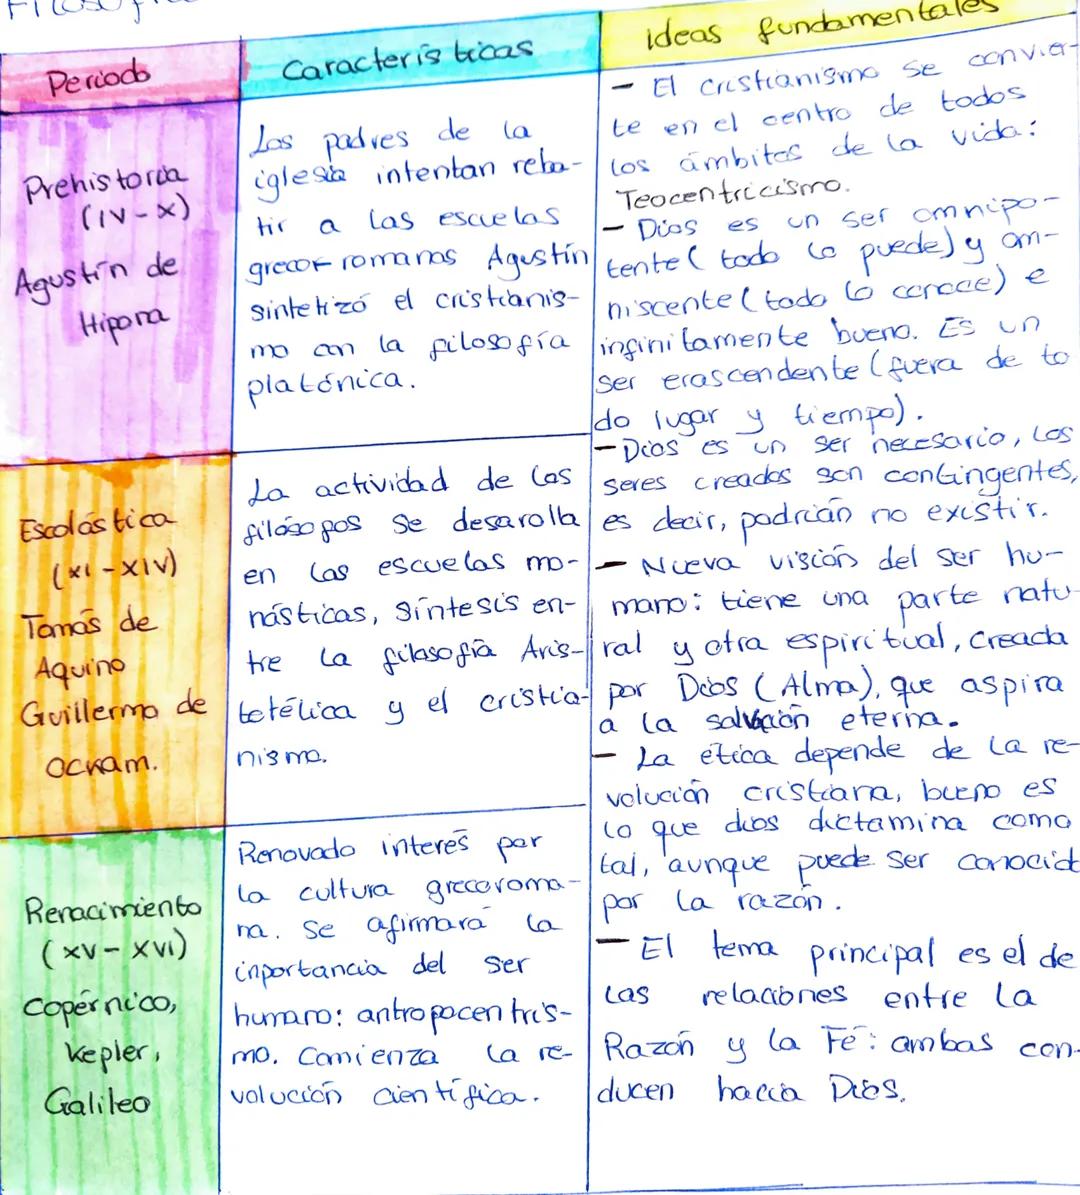 Filosofía
Periodo
Prehistoria
(IV-X)
Agustín de
Hipona
Escolástica
(XI-XIV)
Tomás de
Aquino
Guillermo de
Ockam.
Renacimiento
(XV-XVI)
Copérnico,
Kepler,
Galileo
Características
Los padres de la
iglesia intentan reba-
tir a las escuelas
grecor romanas Agustín
sintetizó el cristianis-
mo con la filosofía
platónica.
La actividad de los
filósofos se desarolla
en las escuelas mo-
násticas, síntesis en-
tre la filosofía Aris-
totélica y el cristia-
nismo.
Renovado interés por
la cultura grecoroma-
na. Se afirmará la
inportancia del ser
humano: antropocentris-
mo. Comienza la re-
volución científica.
Ideas fundamentales
- El cristianismo se convier-
te en el centro de todos
los ámbitos de la vida:
Teocentricismo.
- Dios es un ser omnipo-
tente (todo lo puede) y om-
niscente (todo lo conoce) e
infinitamente bueno. Es un
ser erascendente (fuera de to
do lugar y tiempo).
- Dios es un ser necesario, los
seres creados son contingentes,
es decir, podrían no existir.
- Nueva visión del ser hu-
mano: tiene una parte natu-
ral y otra espiritual, creada
por Dios (Alma), que aspira
a la salvación eterna.
- La ética depende de la re-
volución cristiana, bueno es
lo que dios dictamina como
tal, aunque puede ser conocid
por la razón.
- El tema principal es el de
las relaciones entre la
Razón y la Fé: ambas con-
ducen hacia Dios.